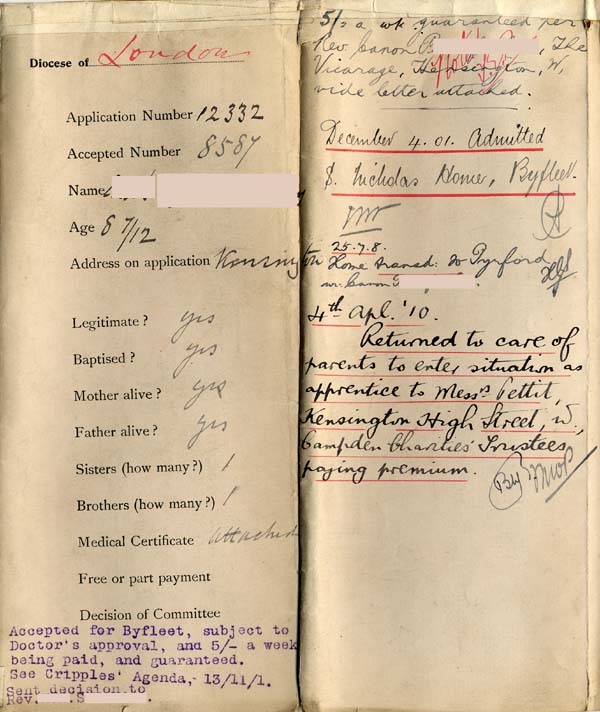 Diocese of London
Application Number 12332
Accepted Number 8587
Name
Age 8 7/12
Address on application Kensington
Legitimate? yes
Baptised? yes
Mother alive? yes
Father alive? yes
Sisters (how many?) 1
Brothers (how many?) 1
Medical Certificate attached
Free or part payment
Decision of Committee
Accepted for Byfleet, subject to
Doctor's approval, and 5/- a week
being paid, and guaranteed.
See Cripples' Agenda,- 13/11/1.
Sent decision to
Rev. S
5/= a wk guaranteed per
Rev. Canon , The
Vicarage, Kensington, W,
vide letter attached.
December 4. 01. Admitted
S. Nicholas Home, Byfleet.
25.7.8.
Home transd. to Pyrford
Canon
4th Apl. '10.
Returned to care of
parents to enter situation as
apprentice to Messrs Pettit,
Kensington High Street, W,
Campden Charities' Trustees
paying premium.